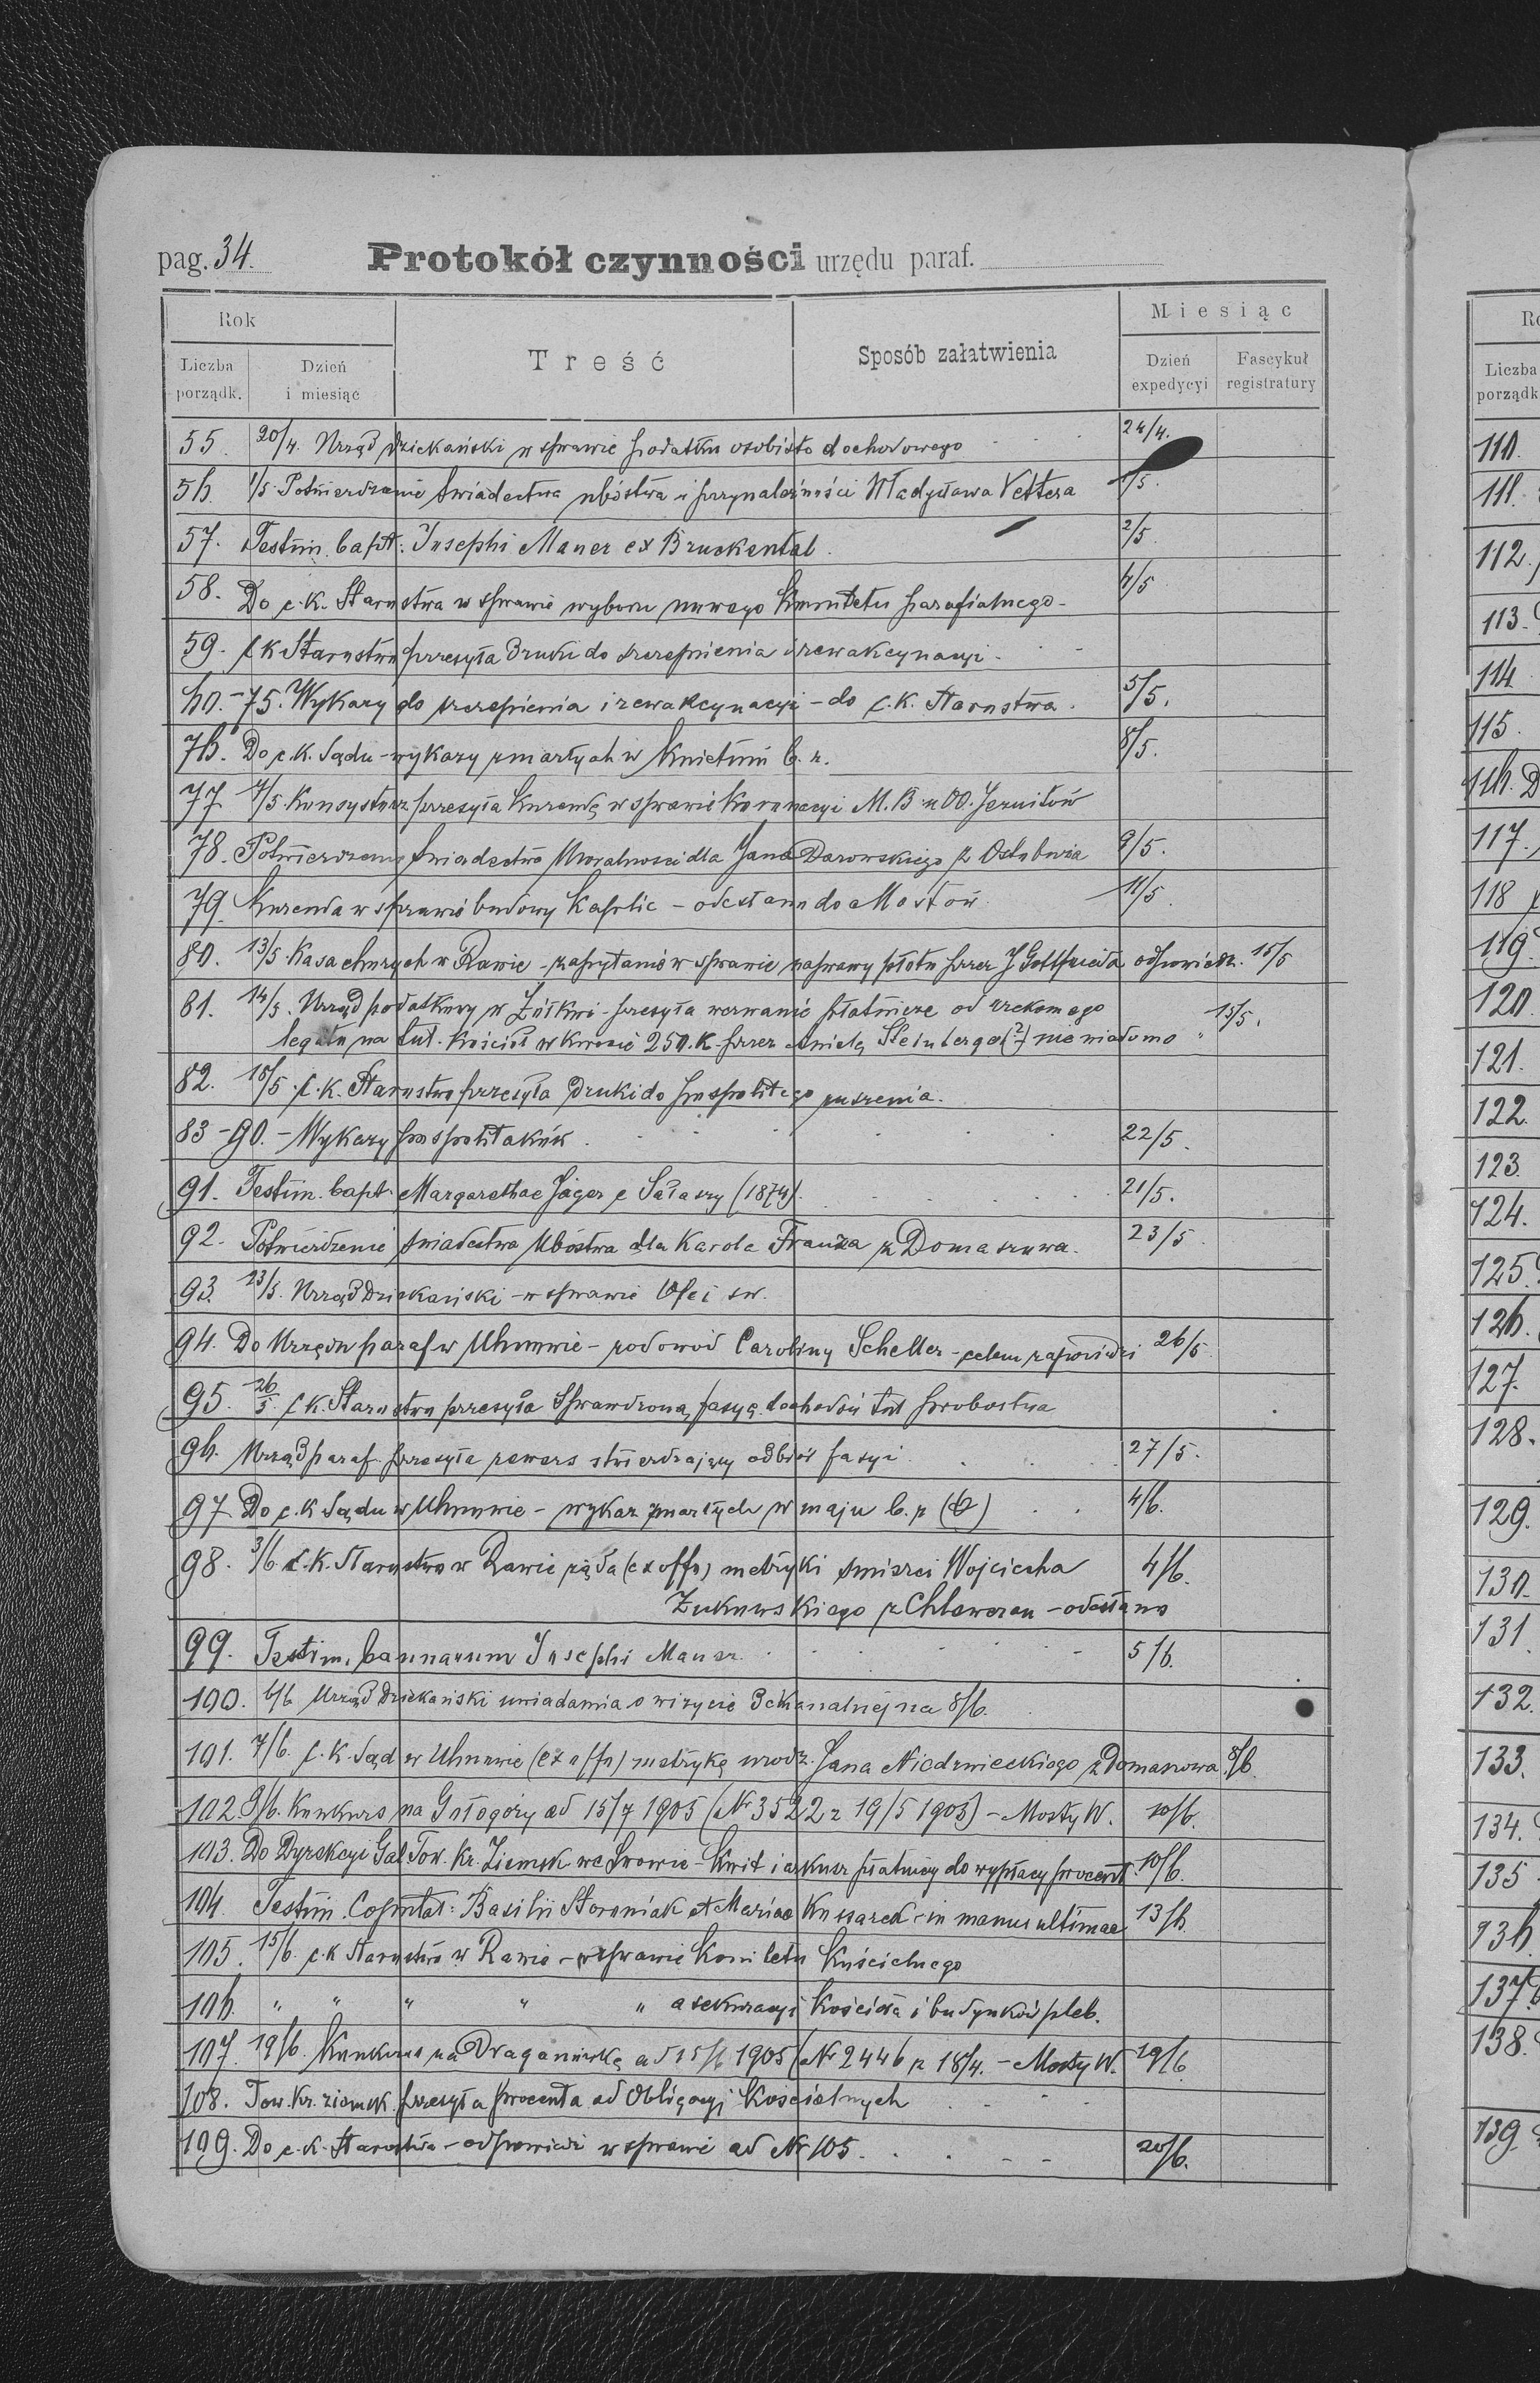 pag. 34. Protokół czynności urzędu paraf.
Rok
Liczba porządk.
Dzień i miesiąc
Treść
Sposób załatwienia
Miesiąc
Dzień expedycyi
Fascykuł registratury
55. 20/4. Urząd dziekański w sprawie podatku osobisto dochodowego 24/4.
56. 1/5. Potwierdzenie świadectwa ubóstwa i przynależności Władysława Vettera 1/5.
57. Testim. bapt: Josephi Mauer ex Bruckental. 2/5.
58. Do c. k. Starostwa w sprawie wyboru nowego Komitetu parafialnego - 4/5
59. c k Starostwo przesyła druki do szczepienia i rewakcynacyi -
60. - 75. Wykazy do szczepienia i rewakcynacyi - do c. k. Starostwa. 5/5.
76. Do c. k. Sądu - wykazy zmarłych w Kwietniu b. r. 8/5.
77. 7/5. Konsystorz przesyła Kurendę w sprawie Koronacyi M. B u OO. Jezuitów
78. Potwierdzenie świadectwa Moralności dla Jana Darowskiego z Ostobuża 9/5.
79. Kurenda w sprawie budowy Kaplic - odesłano do Mostów 11/5.
80. 13/5. Kasa chorych w Rawie - zapytanie w sprawie naprawy płotu przez J Gottfrieda odpowiedz. 15/5
81. 14/5. Urząd podatkowy w Żółkwi - przesyła wezwanie płatnicze od rzekomego
legatu na tut. Kościół w kwocie 250. K. przez Anielę Steinberger (?) nie wiadomo 15/5.
82. 18/5. c. k. Starostwo przesyła druki do pospolitego ruszenia.
83 - 90. - Wykazy pospolitaków. 22/5.
91. Testim. bapt. Margarethae Jäger e Sałaszy (1874). 21/5.
92. Potwierdzenie świadectwa Ubóstwa dla Karola Franza z Domaszowa. 23/5.
93. 23/5. Urząd Dziekański - w sprawie Olei św.
94. Do Urzędu paraf w Uhnowie - rodowód Caroliny Scheller - celem zapowiedzi 26/5
95. 26/5. c k. Starostwo przesyła Sprawdzoną fasyę dochodów tut probostwa
96. Urząd paraf. przesyła rewers stwierdzający odbiór fasyi 27/5.
97. Do c. K Sądu w Uhnowie - wykaz zmarłych w maju b. r (6) 4/6.
98. 3/6 c. K. Starostwo w Rawie żąda (ex offo) metryki śmierci Wojciecha 4/6.
Żukowskiego z Chlewczan - odesłano
99. Testim. bannorum Josephi Mauer. 5/6.
100. 6/6 Urząd Dziekański uwiadamia o wizycie Dekanalnej na 8/6.
101. 7/6. c. K. Sąd w Uhnowie (ex offo) metrykę urodz. Jana Niedzwieckiego z Domaszowa. 8/6
102. 9/6. Konkurs na Gołogóry ad 15/7 1905 (Nr 3522 z 19/5 1905) - Mosty W. 10/6.
103. Do Dyrekcyi Gal Tow. Kr. Ziemsk we Lwowie - Kwit i arkusz płatniczy do wypłacy procent. 10/6.
104. Testim. Copulat: Basilii Storoniak et Mariae Kossarek - in manus ultimae 13/6.
105. 15/6. c. k Starostwo w Rawie - w sprawie Komitetu Kościelnego
106. " " " " " asekuracyi Kościoła i budynków pleb.
107. 19/6. Konkurs na Draganówkę ad 15/6 1905 (Nr 2446 z 18/4. - Mosty W. 19/6
108. Tow. kr. ziemsk. przesyła procenta od Obligacyi Kościelnych
109. Do c. k. Starostwa - odpowiedź w sprawie ad Nr 105. 20/6.
Liczba
porządk
110.
111.
112.
113.
114
115.
116. D
117.
118
119.
120
121.
122.
123.
124.
125.
126.
127.
128.
129.
130.
131.
132.
133.
134.
135
136.
137.
138.
139